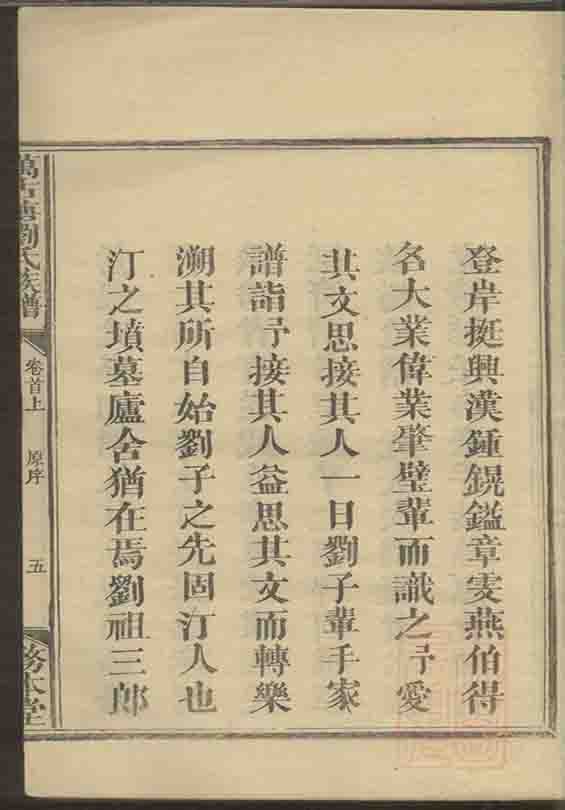 登岸挺興漢鍾鎤鑑章雯燕伯得
名大業偉業肇璧輩而識之予愛
其文思接其人一日劉子輩手家
譜詣予接其人益思其文而轉樂
溯其所自始劉子之先固汀人也
汀之墳墓廬舍猶在焉劉祖三郎
萬 劉氏族譜
卷首上
原序
五
務本堂